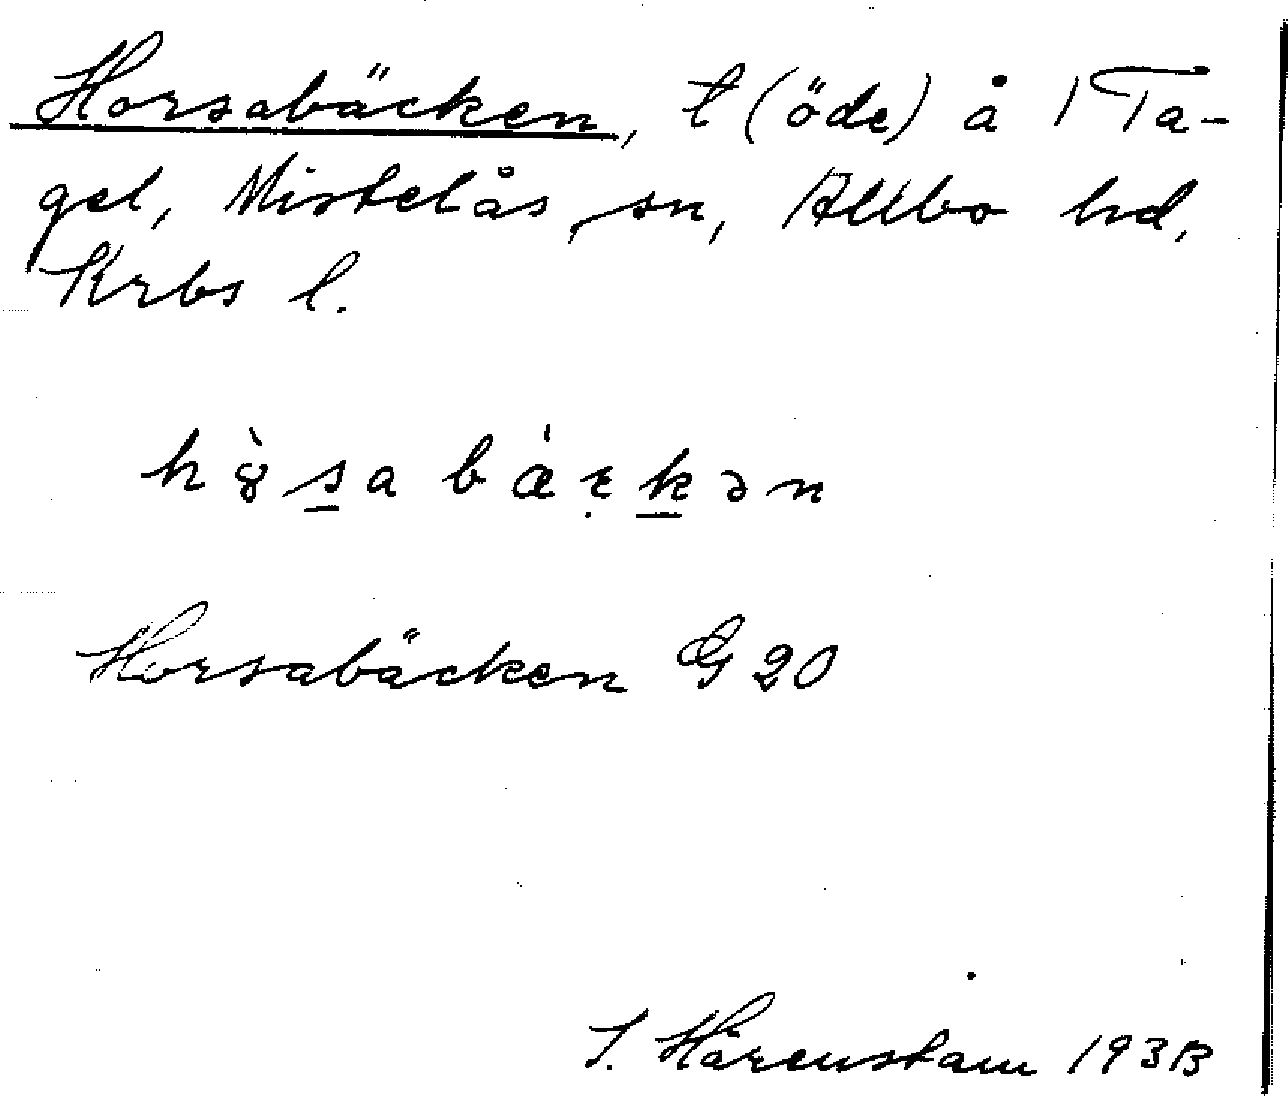 Horsabäcken, t (öde) å 1 Ta-
gel, Mistelås sn, Allbo hd,
Krbs l.
hò̤s̲a bá̤ꞓk̲ən
Horsabäcken G 20
I. Hårenstam 1938